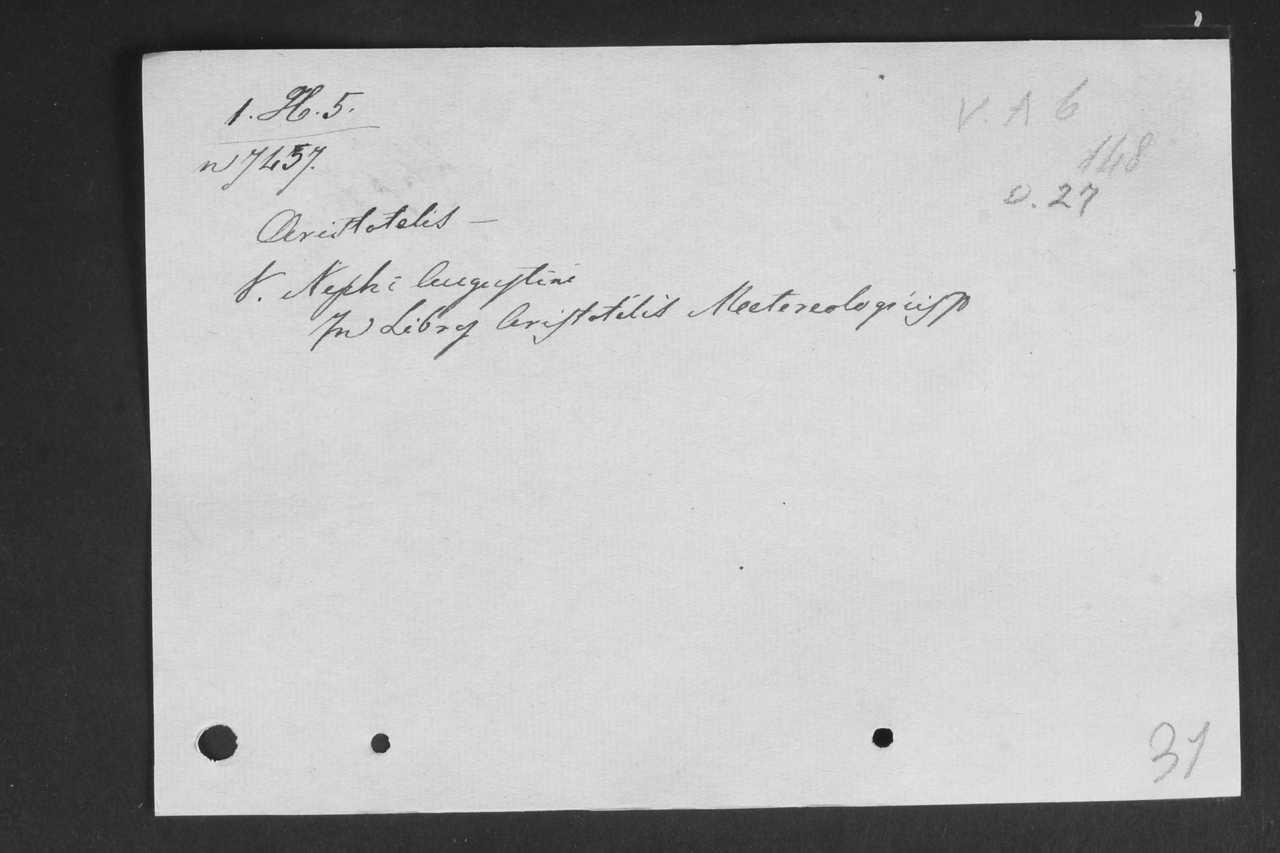 1. H. 5.
n 7457.
V. A 6
148
D. 27
Aristotelis —
V. Nephi Augustini
In Libros Aristotelis Metereologicis
31